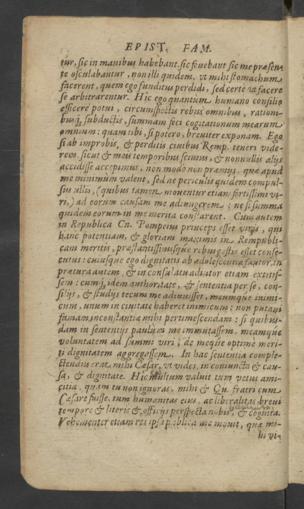 EPIST. FAM.
tur, sic in manibus habebant, sic fovebant, sic me præsen-
te osculabantur, non illi quidem, ut mihi stomachum
facerent, quem ego funditus perdidi, sed certe ut facere
se arbitrarentur. Hic ego quantum humano consilio
efficere potui, circumspectis rebus omnibus, rationi-
busq; subductis, summam feci cogitationum mearum
omnium: quam tibi, si potero, breviter exponam. Ego
si ab improbis, & perditis civibus Remp. teneri vide-
rem, sicut & meis temporibus scimus, & nonnullis aliis
accidisse accepimus, non modo non præmiis, quæ apud
me minimum valent, sed ne periculis quidem compul-
sus ullis, (quibus tamen moventur etiam fortissimi vi-
ri,) ad eorum causam me adjungerem: ne si summa
quidem eorum in me merita constarent. Cum autem
in Republica Cn. Pompeius princeps esset vir, qui
hanc potentiam, & gloriam maximis in Rempubli-
cam meritis, præstantissimisque rebus gestis esset conse-
cutus: cuiusque ego dignitatis ab adolescentia fautor, in
prætura autem, & in consulatu adiutor etiam extitis-
sem: cumq; idem authoritate, & sententia per se, con-
siliis, & studiis tecum me adiuvisset, meumque inimi-
cum, unum in civitate haberet inimicum: non putavi
famam inconstantiæ mihi pertimescendam: si quibus-
dam in sententiis paulum me immutassem, meamque
voluntatem ad summi viri, de meque optime meri-
ti dignitatem aggregassem. In hac sententia comple-
ctendus erat mihi Cæsar, ut vides, in coniuncta & cau-
sa, & dignitate. Hic multum valuit cum vetus ami-
citia, quam tu non ignoras, mihi & Qu. fratri cum
Cæsare fuisse, tum humanitas eius, ac liberalitas brevi
tempore & literis & officiis perspecta nobis, & cognita.
Vehementer etiam res ipsa publica me movit, quæ mi-